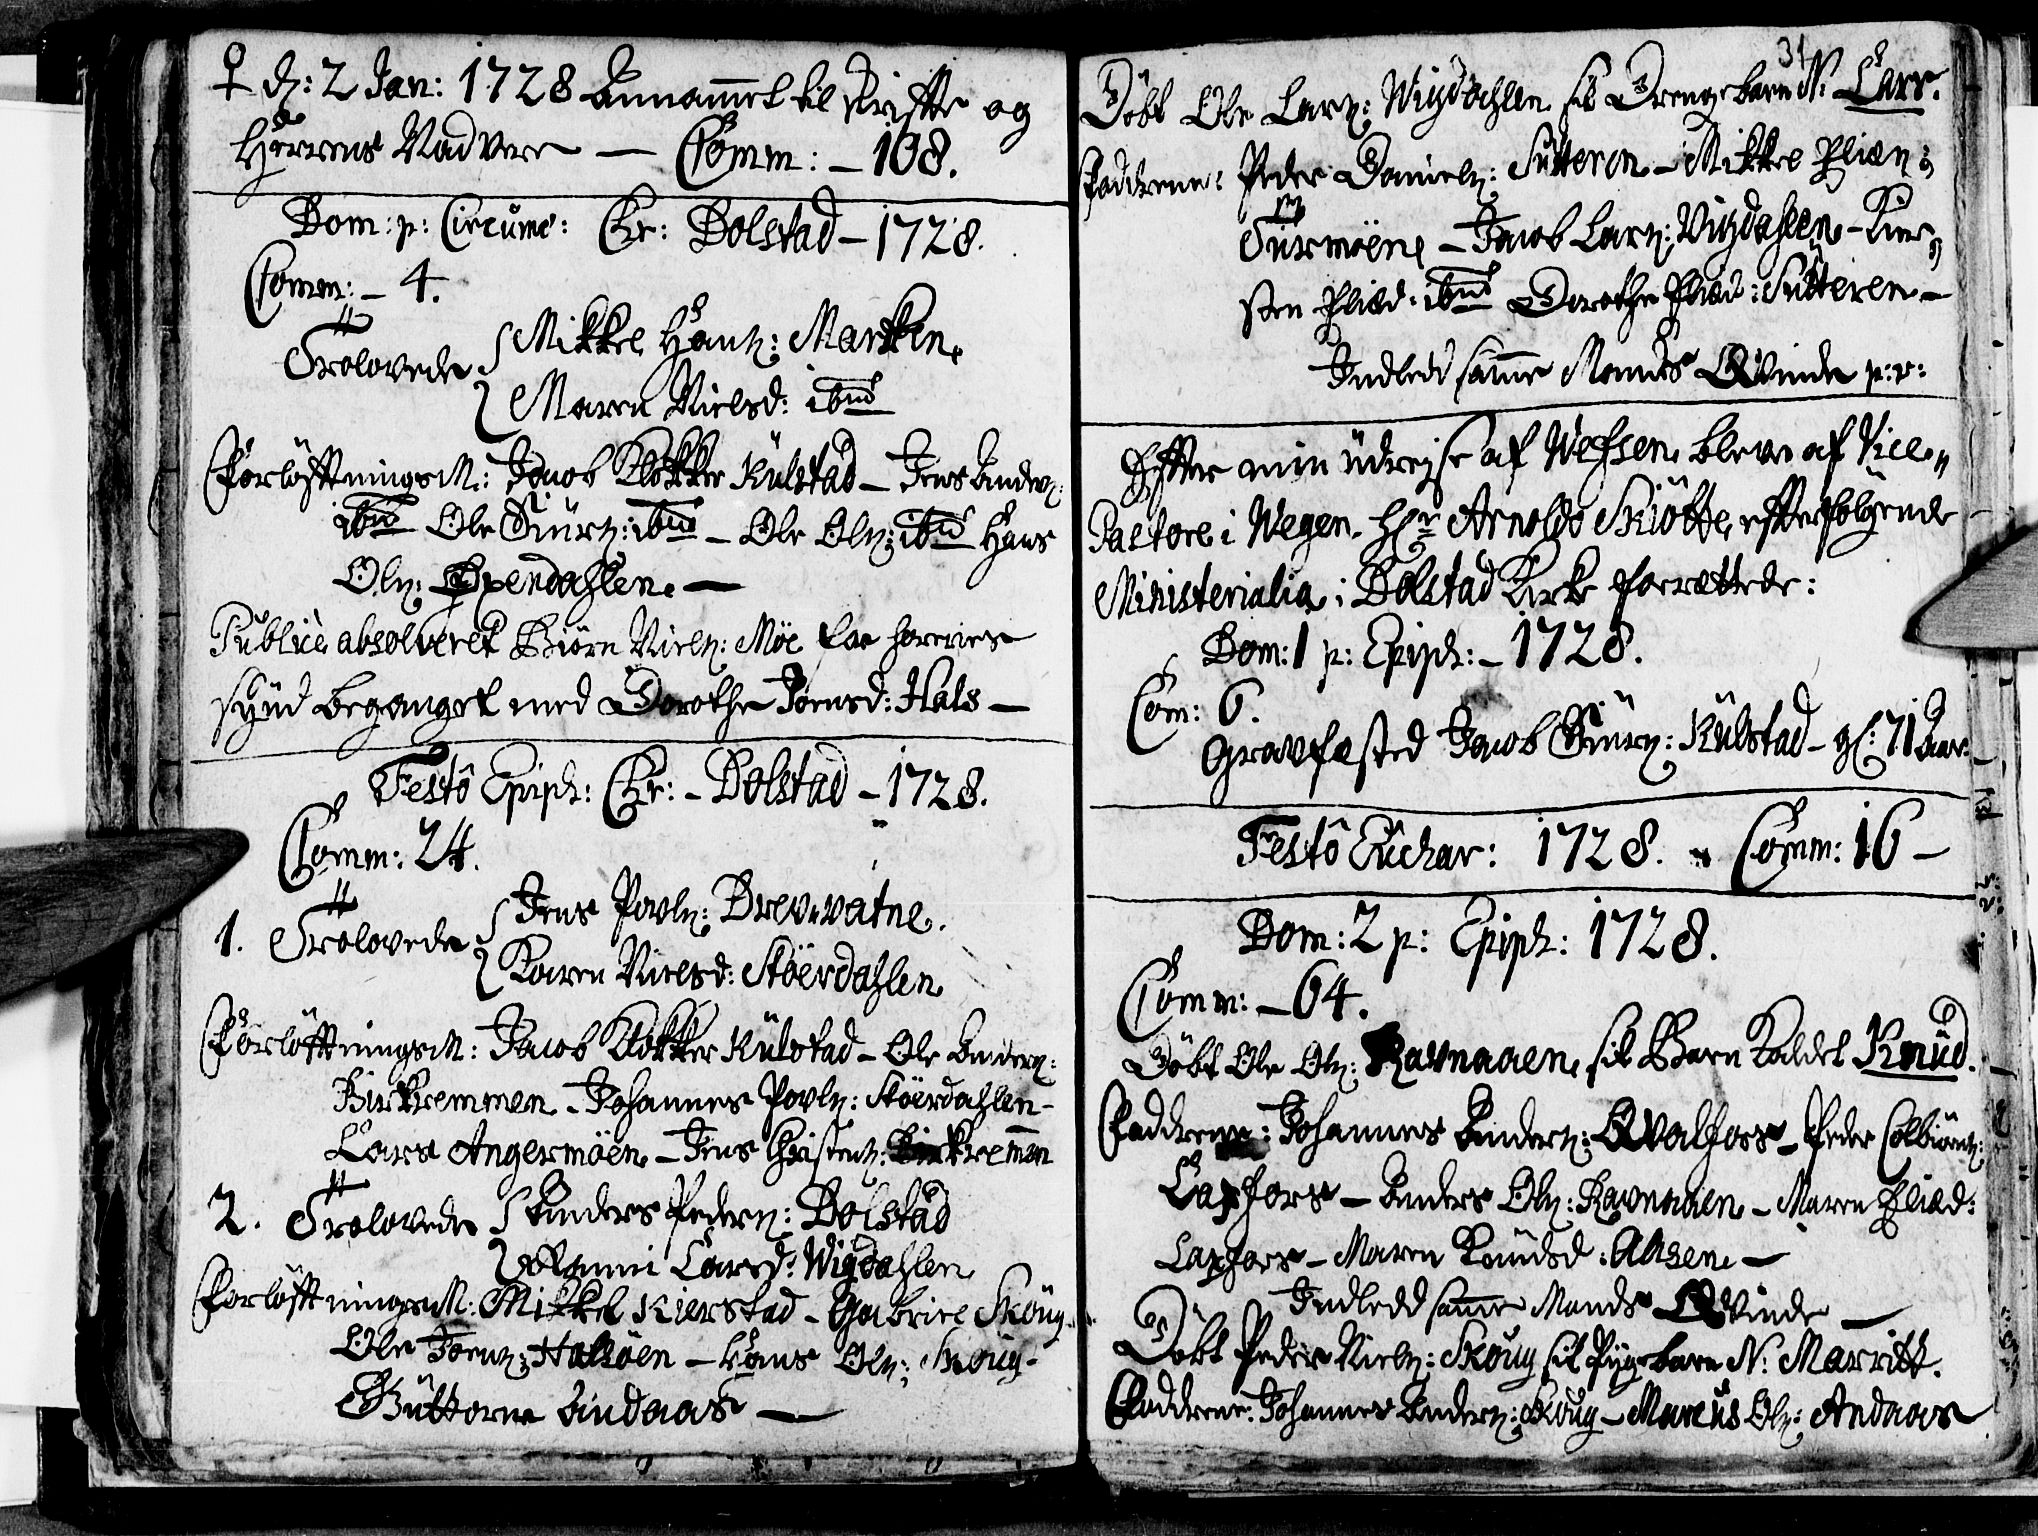 ♀ d: 2 Jan: 1728 Annammet til skrifte og
Herrens Nadvere — Comm: – 108.
Dom: p: Circumc: Chr: Dolstad – 1728.
Comm: – 4.
Trolovede Mikkel Hansz: Marken
Maren Nielsd: ibid
Forløftningsm: Jacob Klokker Kulstad – Jens Andersz:
ibid Ole Siursz: ibid – Ole Olsz: ibid Hans
Olsz: dahlen. —
Publicè absolveret Biörn Nielsz: Möe for
synd beganget med Dorothe Joensd: Hals —
Festô Epiph: Chr: – Dolstad – 1728.
Comm: 24.
1. Trolovede Jens Povlsz: Drevvatne.
Karen Nielsd: Stöerdahlen
Forløftningsm: Jacob Klokker Kulstad – Ole Andersz:
Birkremmen – Johannes Povlsz: Stöerdahlen –
Lars Angermöen – Jens Christensz: Birkremmen
2. Trolovede Anders Pedersz: Dolstad
Larsd: Wigdahlen
Forløftningsm: Mikkel Kierstad – Gabriel Skoug –
Ole Joensz: Halsöen – Hans Olsz: Skoug –
Guttorm Andaas —
31
Döbt Ole Larsz: Wigdahlen sit Drengebarn N: Lars.
Faddrene: Peder Danielsz: Sutteren – Mikkel Eliæ
Turmöen – Jacob Larsz: Vigdahlen – Kir
sten Eliæd: ibid Dorothe Eliæd: Sutteren –
Indledd samme Mands Qvinde p: v:
Effter min udrejse af Wefsen bleve af Vice
Pastore i Wegen Hr Arnoldo Skiötte efterfölgende
Ministerialia i Dolstad Kirke forrettede:
Dom: 1 p: Epiph: – 1728.
Com: 6.
Gravfæsted Jacob Siursz: Kulstad – gl: 71 Aar
Festô Euchar: 1728. – Comm: 16 –
Dom: 2 p: Epiph: 1728.
Comm: – 64.
Döbt Ole Olsz: Ravnaaen sit Barn kaldet Knud.
Faddrene: Johannes Andersz: Qvalfors – Peder Colbiörnsz:
Laxfors – Anders Olsz: Ravnaaen – Maren Eliæd:
Laxfors – Maren Knudsd: –
Indledd samme Mands Qvinde —
Döbt Peder Nielsz: Skoug sit Pigebarn N: Marritt.
Faddrene: Johannes Andersz: Skoug – Marcus Olsz: Andaas